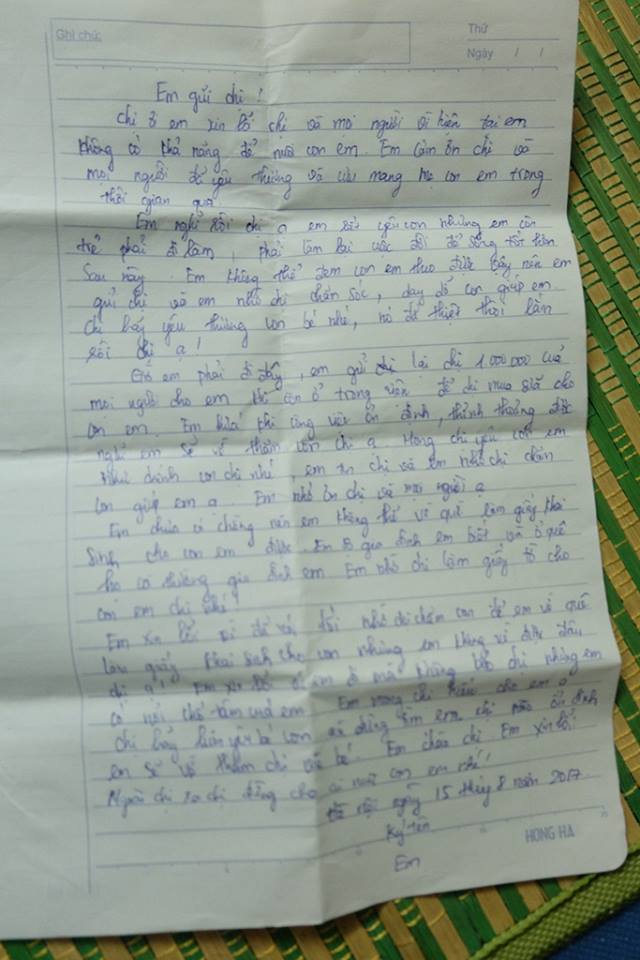 Ghi chú:
Thứ
Ngày / /
Em gửi chị !
Chị ơi em xin lỗi chị và mọi người vì hiện tại em
không có khả năng để nuôi con em. Em cảm ơn chị và
mọi người đã yêu thương và cưu mang mẹ con em trong
thời gian qua
Em nghĩ rồi chị ạ em rất yêu con nhưng em còn
trẻ phải đi làm, phải làm lại cuộc đời để sống tốt hơn
sau này. Em không thể đem con em theo được vậy nên em
gửi chị và em nhờ chị chăm sóc, dạy dỗ con giúp em
chị hãy yêu thương con bé nhé, nó đã thiệt thòi lắm
rồi chị ạ !
Giờ em phải đi đây, em gửi lại chị 1.000.000 của
mọi người cho em khi còn ở trong viện để chị mua sữa cho
con em. Em hứa khi công việc ổn định, thỉnh thoảng được
nghỉ em sẽ về thăm con chị ạ. Mong chị yêu con em
như chính con chị nhé, em tin chị và em nhờ chị chăm
con giúp em ạ. Em nhớ ơn chị và mọi người ạ
Em chưa có chồng nên em không thể về quê làm giấy khai
sinh cho con em được. Em sợ gia đình em biết và ở quê
họ gia đình em. Em nhờ chị làm giấy tờ cho
con em chị nhé!
Em xin lỗi vì đã nói dối nhờ chị chăm con để em về quê
làm giấy khai sinh cho con nhưng em không về được đâu
chị ạ! Em xin lỗi vì em không chị nhưng em
có nỗi khổ tâm của em. Em mong chị hiểu cho em ạ
Chị hãy con và đừng tìm em, khi nào ổn định
em sẽ về thăm chị với bé. Em chào chị. Em xin lỗi!
Ngoài chị ra chị đừng cho ai nuôi con em nhé!
Hà nội ngày 15 tháng 8 năm 2017.
Ký tên
Em
HONG HA